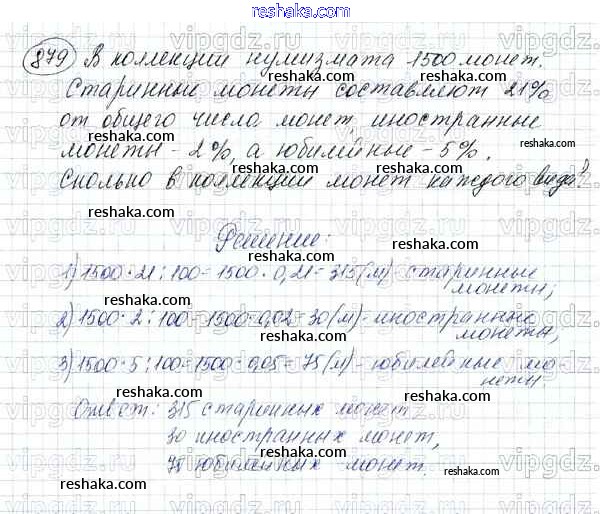 reshaka.com
879 В коллекции нумизмата 1500 монет.
Старинные монеты составляют 21%
от общего числа монет, иностранные
монеты - 2%, а юбилейные - 5%.
Сколько в коллекции монет каждого вида?
Решение:
1) 1500 · 21 : 100 = 1500 · 0,21 = 315 (м) - старинные
монеты;
2) 1500 · 2 : 100 = 1500 · 0,02 = 30 (м) - иностранные
монеты;
3) 1500 · 5 : 100 = 1500 · 0,05 = 75 (м) - юбилейные мо
неты.
Ответ: 315 старинных монет
30 иностранных монет,
75 юбилейных монет.
reshaka.com
vipgdz.ru